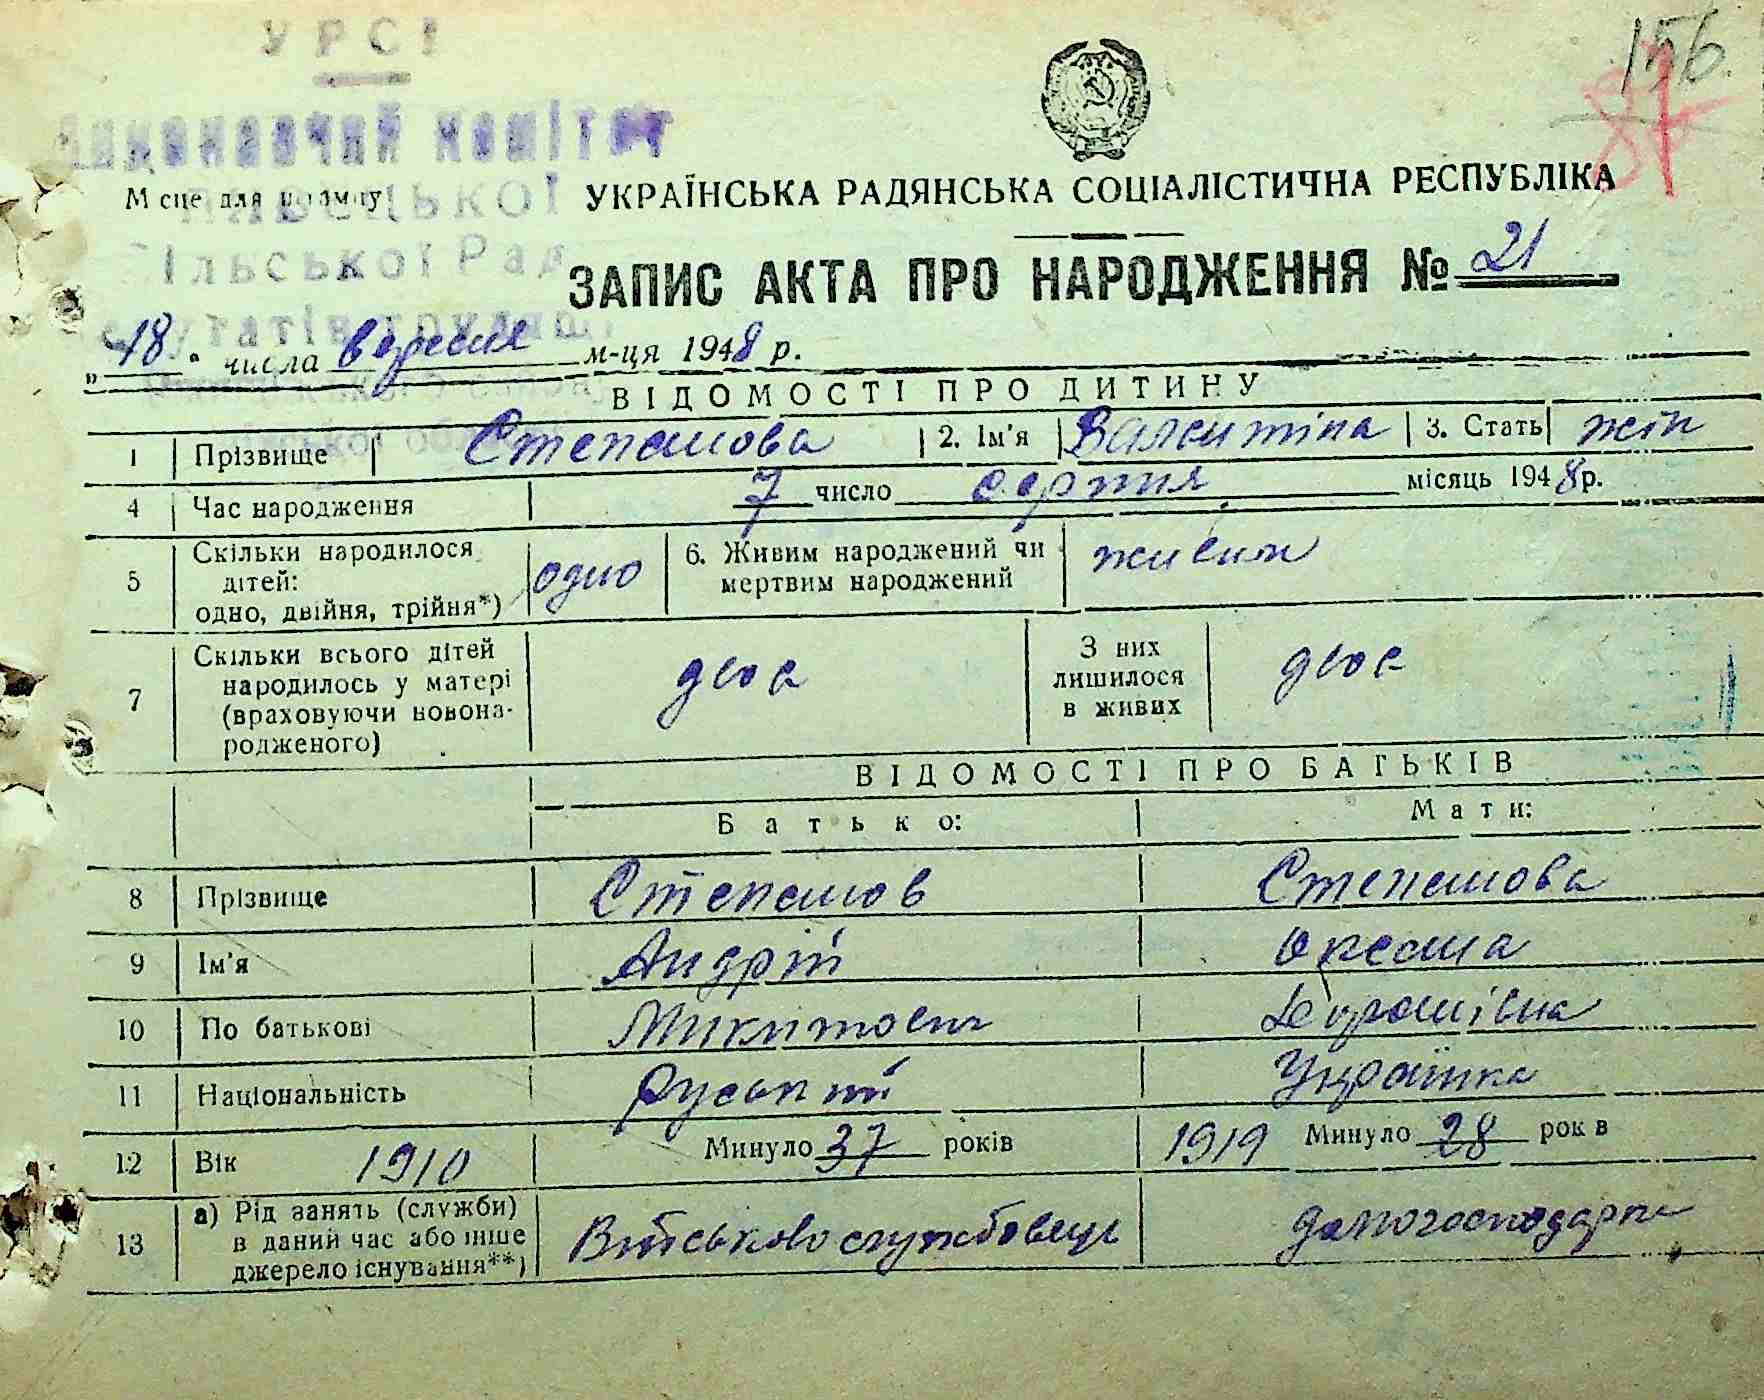 УРСР
Виконавчий комітет
Місце для штампу
УКРАЇНСЬКА РАДЯНСЬКА СОЦІАЛІСТИЧНА РЕСПУБЛІКА
156
87
ільської Рад
ЗАПИС АКТА ПРО НАРОДЖЕННЯ № 21
путатів трудящ
„18" числа вересня м-ця 1948 р.
ВІДОМОСТІ ПРО ДИТИНУ
1 Прізвище Степанова 2. Ім'я Валентіна 3. Стать жін
4 Час народження 7 число серпня місяць 1948 р.
5 Скільки народилося дітей: одно, двійня, трійня*) одно 6. Живим народжений чи мертвим народжений живим
7 Скільки всього дітей народилось у матері (враховуючи новонародженого) двоє З них лишилося в живих двоє
ВІДОМОСТІ ПРО БАТЬКІВ
Батько: Мати:
8 Прізвище Степанов Степанова
9 Ім'я Андрій Оксана
10 По батькові Микитович
11 Національність Руський Українка
12 Вік 1910 Минуло 37 років 1919 Минуло 28 років
13 а) Рід занять (служби) в даний час або інше джерело існування**) Військовослужбовець домогосподарка